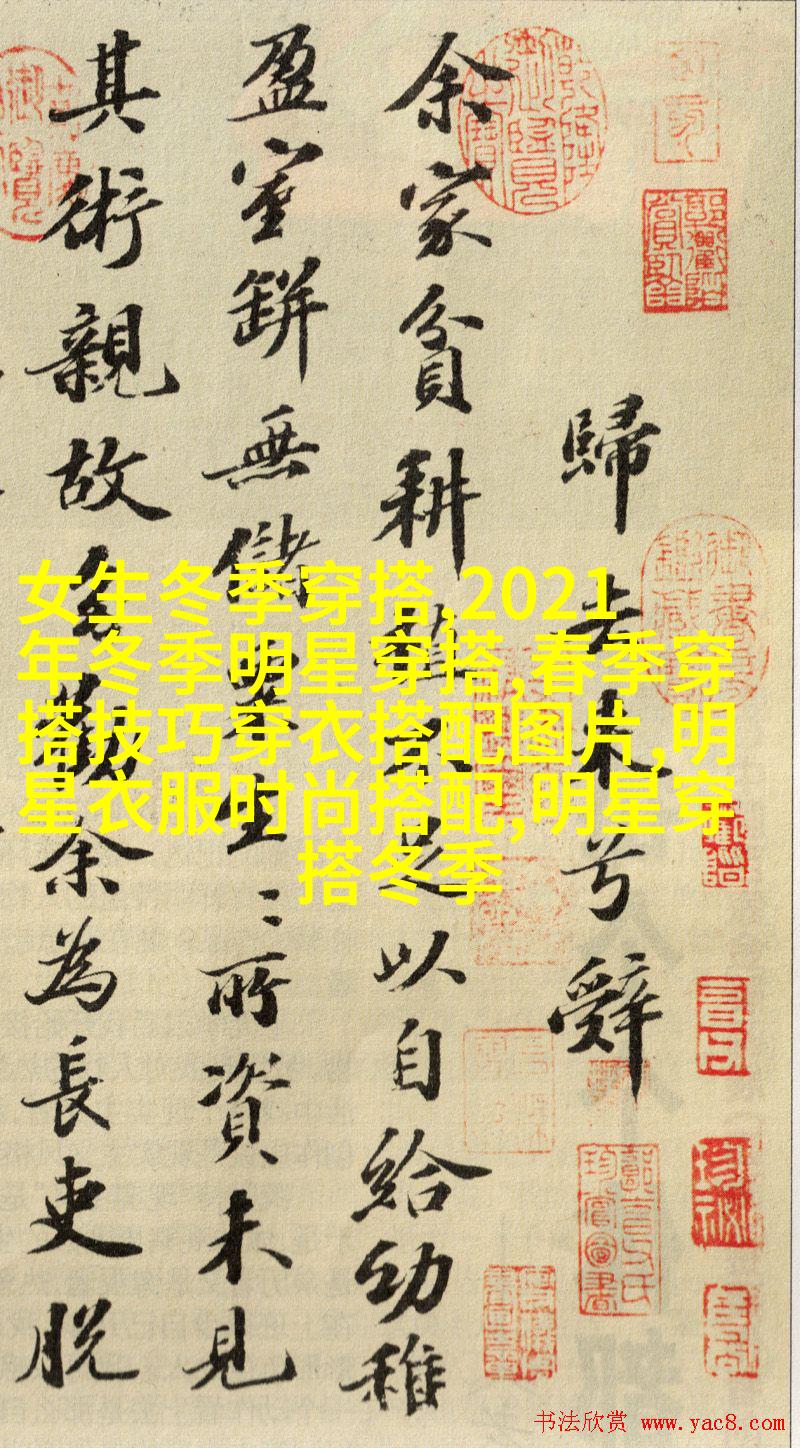 歸去来兮辭
余家貧耕植不足以自給幼稚
盈室缾無儲粟生〻所資未見
其術親故多勸余為長吏脱
女生冬季穿搭,2021
年冬季明星穿搭,春季穿
搭技巧穿衣搭配图片,明
星衣服时尚搭配,明星穿
搭冬季
书法欣赏 www.yac8.com